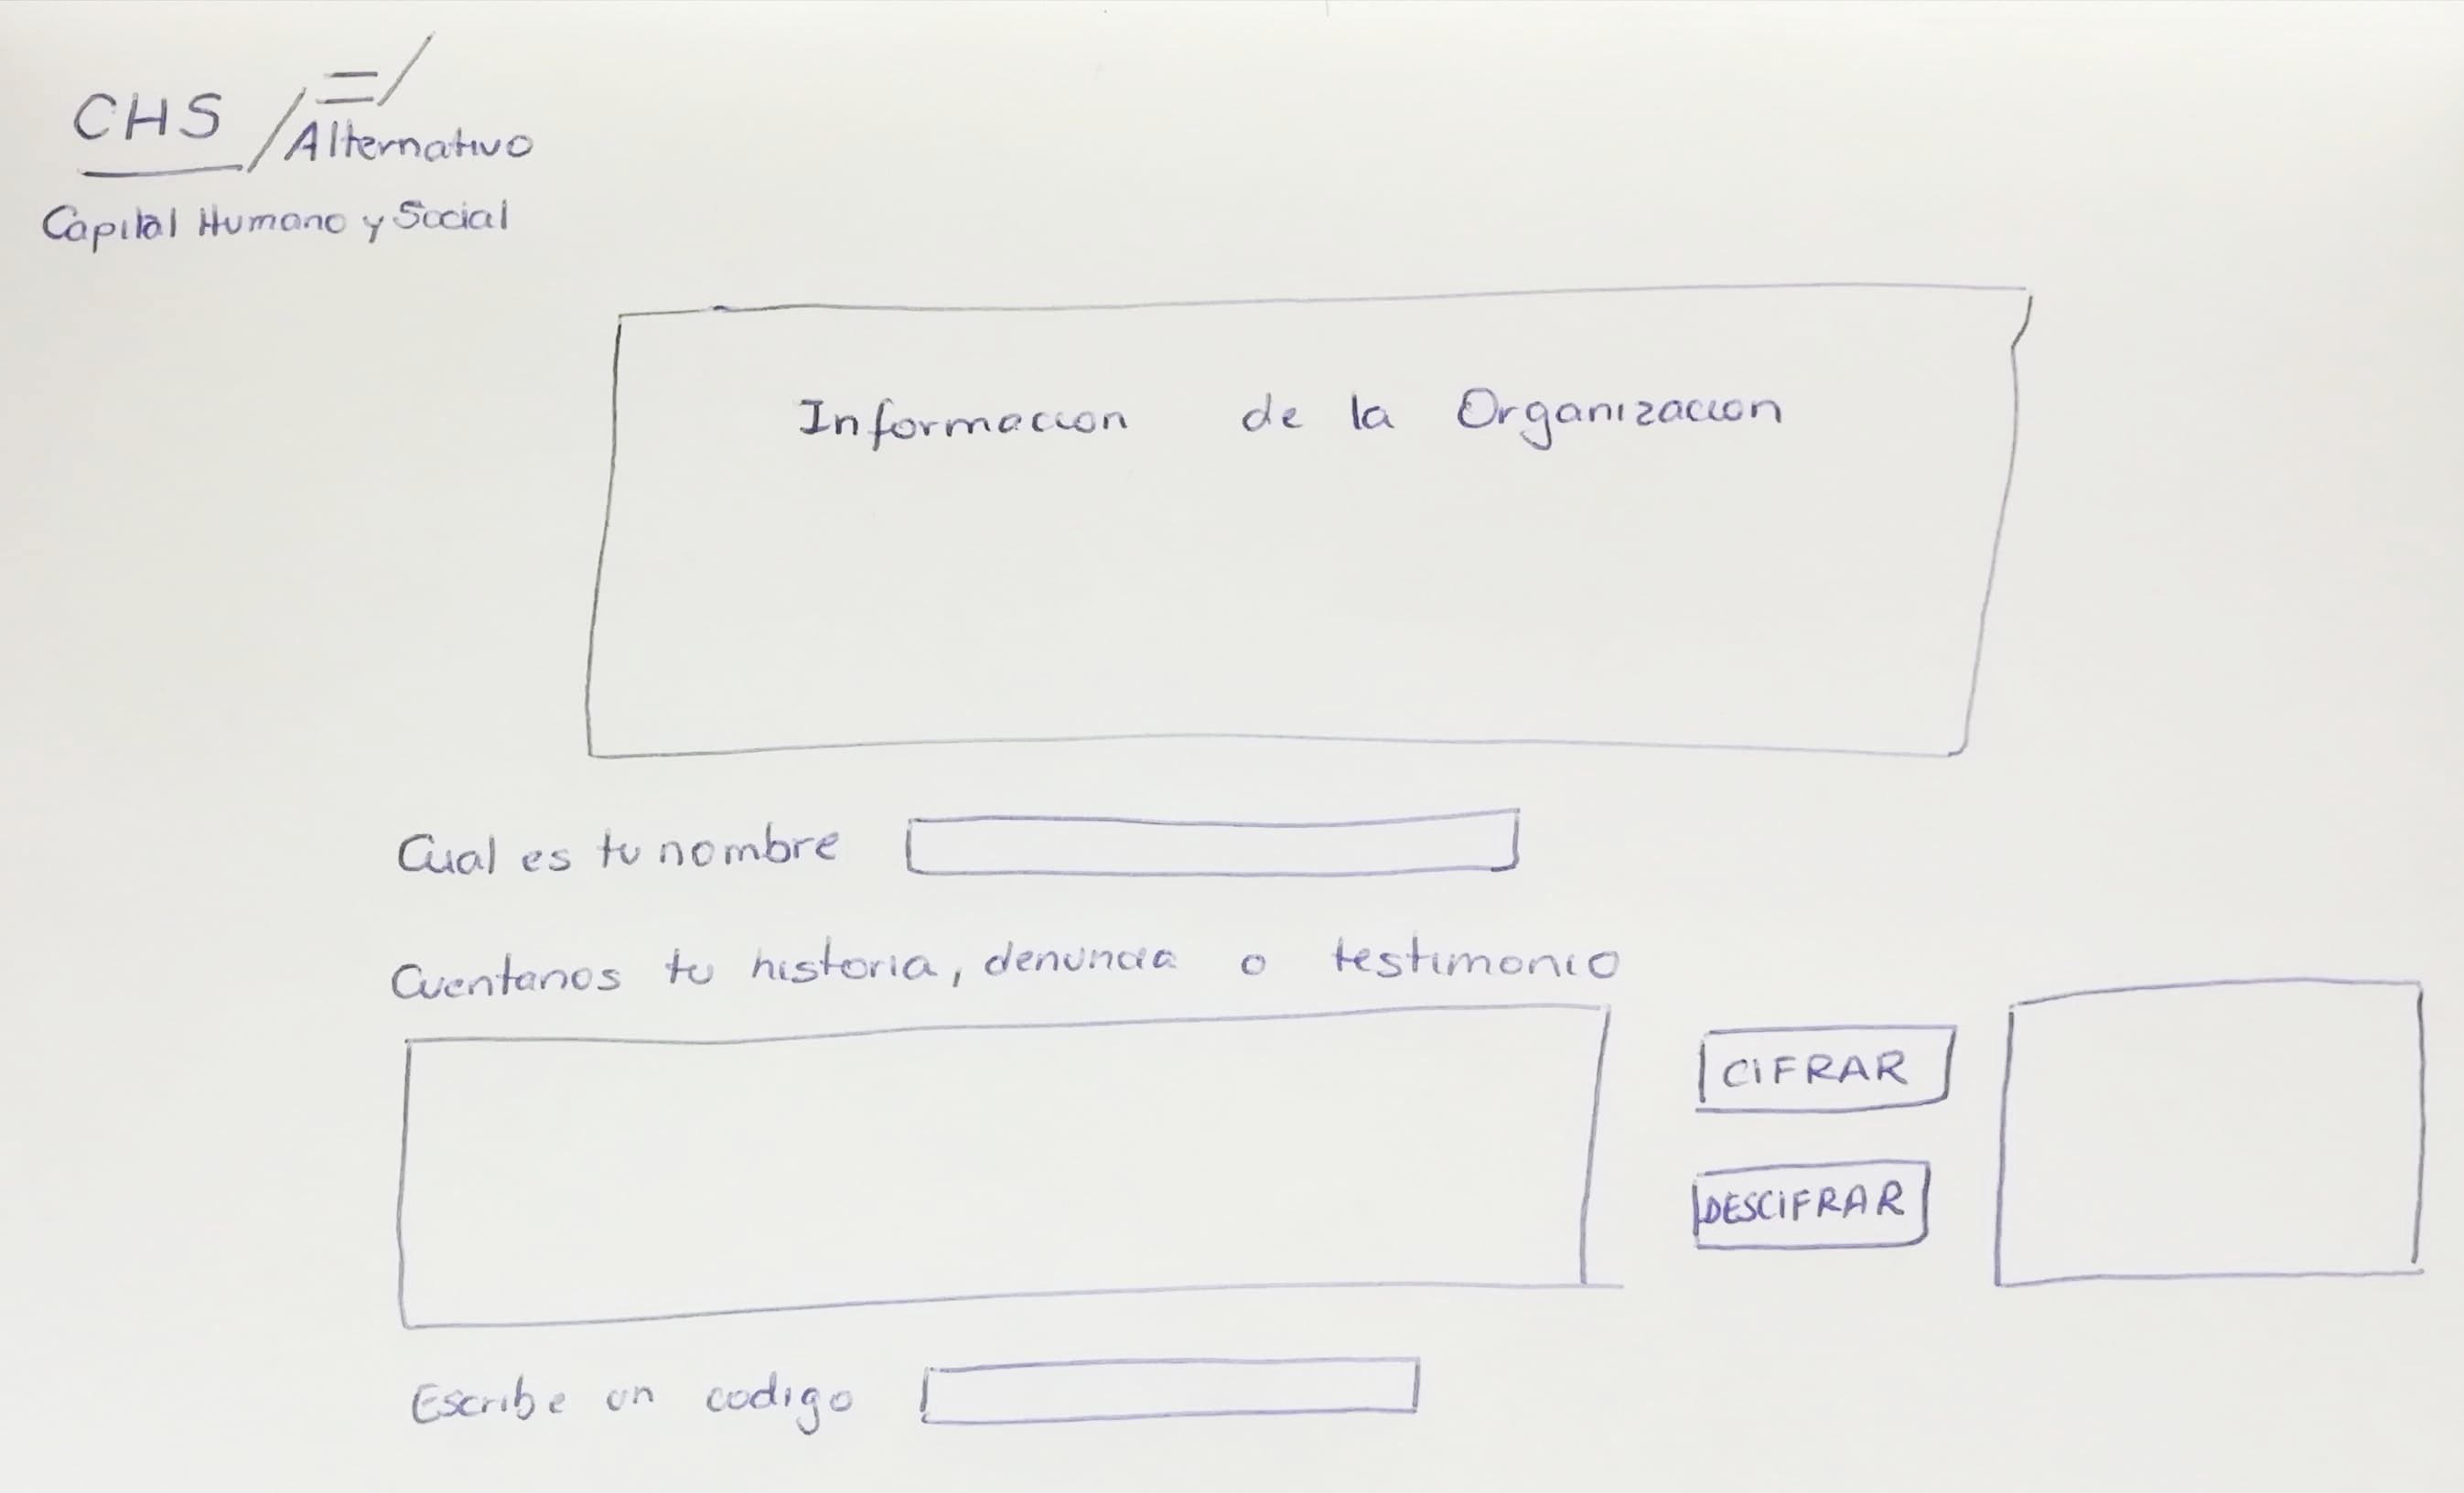 CHS
Alternativo
Capital Humano y Social
Informacion de la Organizacion
Cual es tu nombre
Cuentanos tu historia, denuncia o testimonio
CIFRAR
DESCIFRAR
Escribe un codigo